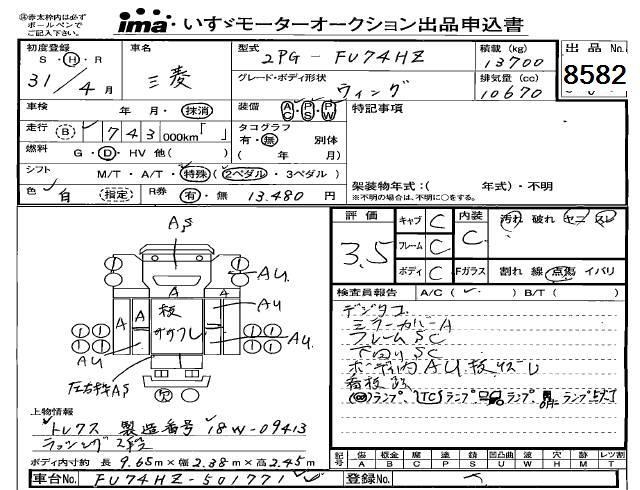 ※赤太枠内は必ずボールペンでご記入下さい。
ima いすゞモーターオークション出品申込書
初度登録 S・H・R 31/4月
車名 三菱
型式 2PG-FU74HZ
積載 (kg) 13700
出品No. 8582
グレード・ボディ形状 ウィング
排気量 (cc) 10670
車検 年 月・抹消
装備 AC・PS・PW
特記事項
走行 B 743 000km「 」
タコグラフ 有・無 別体 ( 年 月)
燃料 G・D・HV 他( )
シフト M/T・A/T・特殊(2ペダル・3ペダル)
架装物年式:( 年式)・不明
※不明の場合は、不明に○をする。
色 白 (指定) R券 有・無 13,480 円
評価 3.5
キャブ C 内装 C 汚れ 破れ ヤニ スレ
フレーム C
ボディ C Fガラス 割れ 線 点傷 イバリ
検査員報告 A/C ( ) B/T ( )
デジタコ
ミラーカバーA
フレームSC
下回りSC
ボディ内AU
看板跡
ランプ TC ランプ ランプ ランプ
AS
AU
AU
AU
AU
A
A A A A
板
左右斜AS
上物情報
トレクス 製造番号 18W-09413
ラッシング2段
ボディ内寸約 長 9.65m×幅 2.38m×高 2.45m
記号 傷A 凹B 腐C 塗P 錆S 凹凸曲U 波W 穴H 跡M レツ割T
車台No. FU74HZ-501771
登録No.